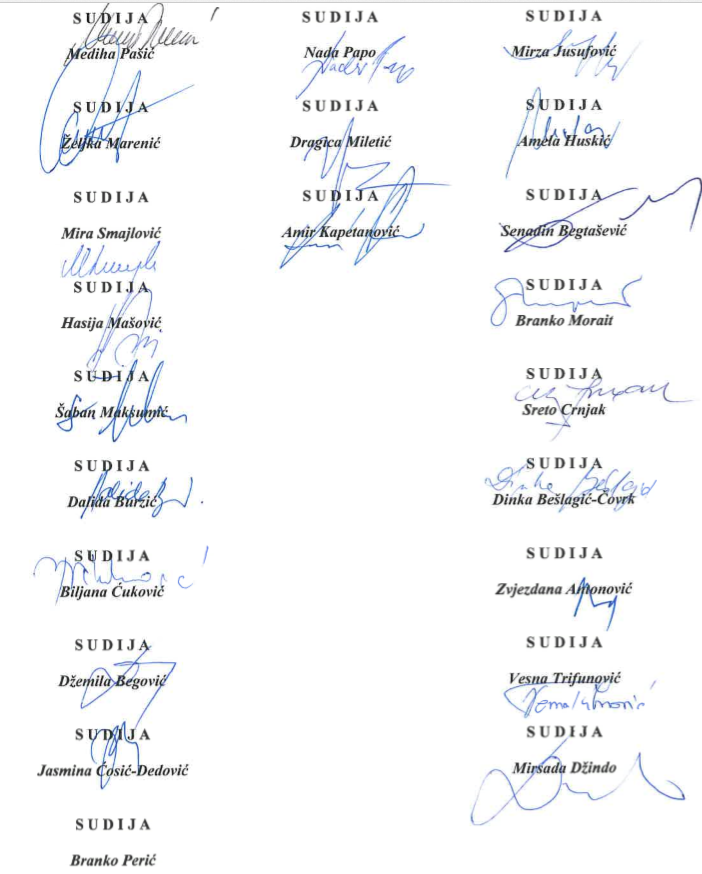 SUDIJA
Mediha Pašić
SUDIJA
Željka Marenić
SUDIJA
Mira Smajlović
SUDIJA
Hasija Mašović
SUDIJA
Šaban Maksumić
SUDIJA
Dalida Burzić
SUDIJA
Biljana Ćuković
SUDIJA
Džemila Begović
SUDIJA
Jasmina Ćosić-Dedović
SUDIJA
Branko Perić
SUDIJA
Nada Papo
SUDIJA
Dragica Miletić
SUDIJA
Amir Kapetanović
SUDIJA
Mirza Jusufović
SUDIJA
Amela Huskić
SUDIJA
Senadin Begtašević
SUDIJA
Branko Morait
SUDIJA
Sreto Crnjak
SUDIJA
Dinka Bešlagić-Čovrk
SUDIJA
Zvjezdana Antonović
SUDIJA
Vesna Trifunović
SUDIJA
Mirsada Džindo